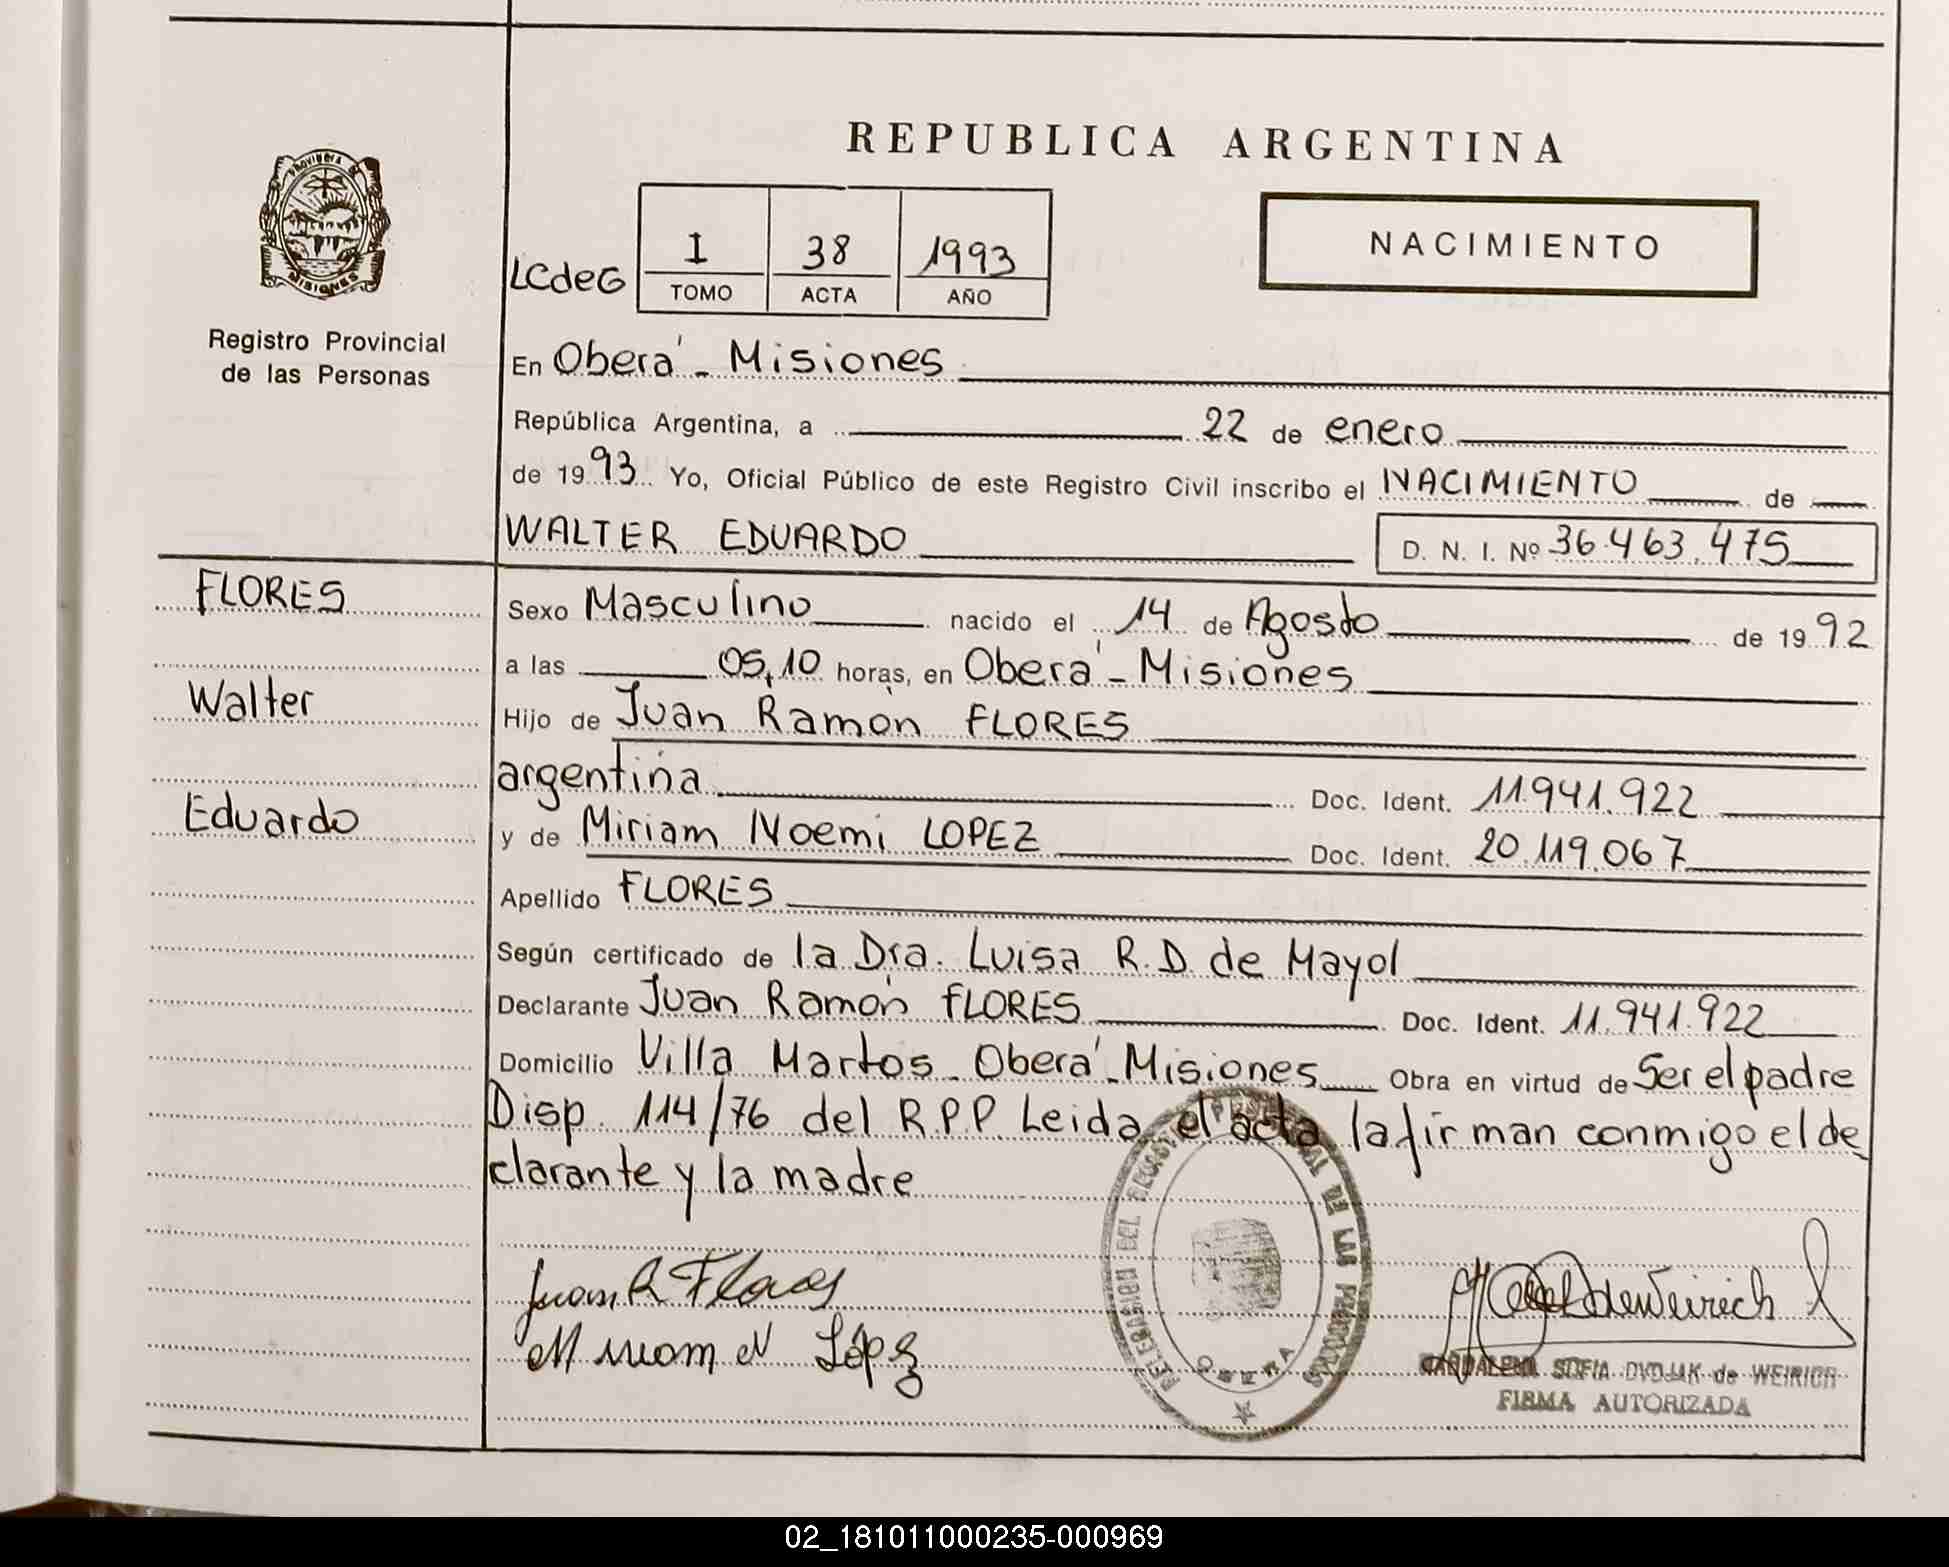 REPUBLICA ARGENTINA
PROVINCIA
MISIONES
Registro Provincial
de las Personas
NACIMIENTO
LCdeG
I 38 1993
TOMO ACTA AÑO
En Oberá - Misiones
República Argentina, a 22 de enero
de 1993 Yo, Oficial Público de este Registro Civil inscribo el NACIMIENTO de
WALTER EDUARDO D. N. I. Nº 36.463.475
FLORES
Walter
Eduardo
Sexo Masculino nacido el 14 de Agosto de 1992
a las 05,10 horas, en Oberá - Misiones
Hijo de Juan Ramón FLORES
argentina Doc. Ident. 11.941.922
y de Miriam Noemi LOPEZ Doc. Ident. 20.119.067
Apellido FLORES
Según certificado de la Dra. Luisa R.D. de Mayol
Declarante Juan Ramón FLORES Doc. Ident. 11.941.922
Domicilio Villa Martos - Oberá - Misiones Obra en virtud de Ser el padre
Disp. 114/76 del R.P.P. Leida el acta la firman conmigo el de
clarante y la madre
Juan R Flores
Miriam N López
DE LAS
OBERA
SOFIA DVOJAK de WEIRICH
FIRMA AUTORIZADA
02_181011000235-000969